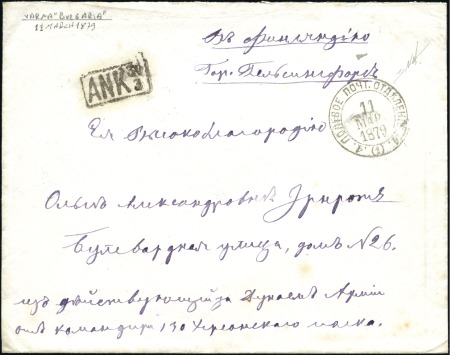 VARNA "BULGARIA"
11 MARCH 1879
Въ Финляндію
Гор. Гельсингфорсъ
ANK 30/3
ПОЛЕВОЕ ПОЧТ. ОТДѢЛЕН.
11
МАР
1879
Ея Высокоблагородію
Ольгѣ Александровнѣ
Булевардная улица, домъ №26.
изъ дѣйствующей за Дунаемъ Арміи
отъ командира 130 Херсонскаго полка.